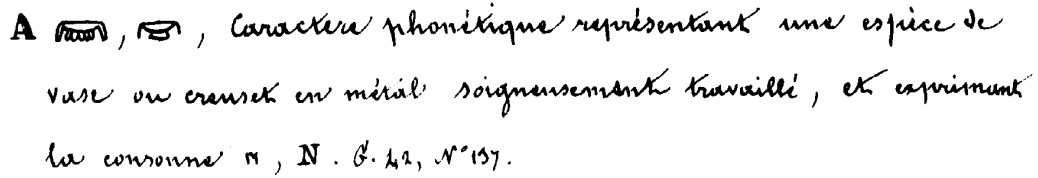 A , , Caractere phonétique représentant une espèce de
vase ou creuset en métal soigneusement travaillé, et exprimant
la consonne n, N. G. 42, N° 137.